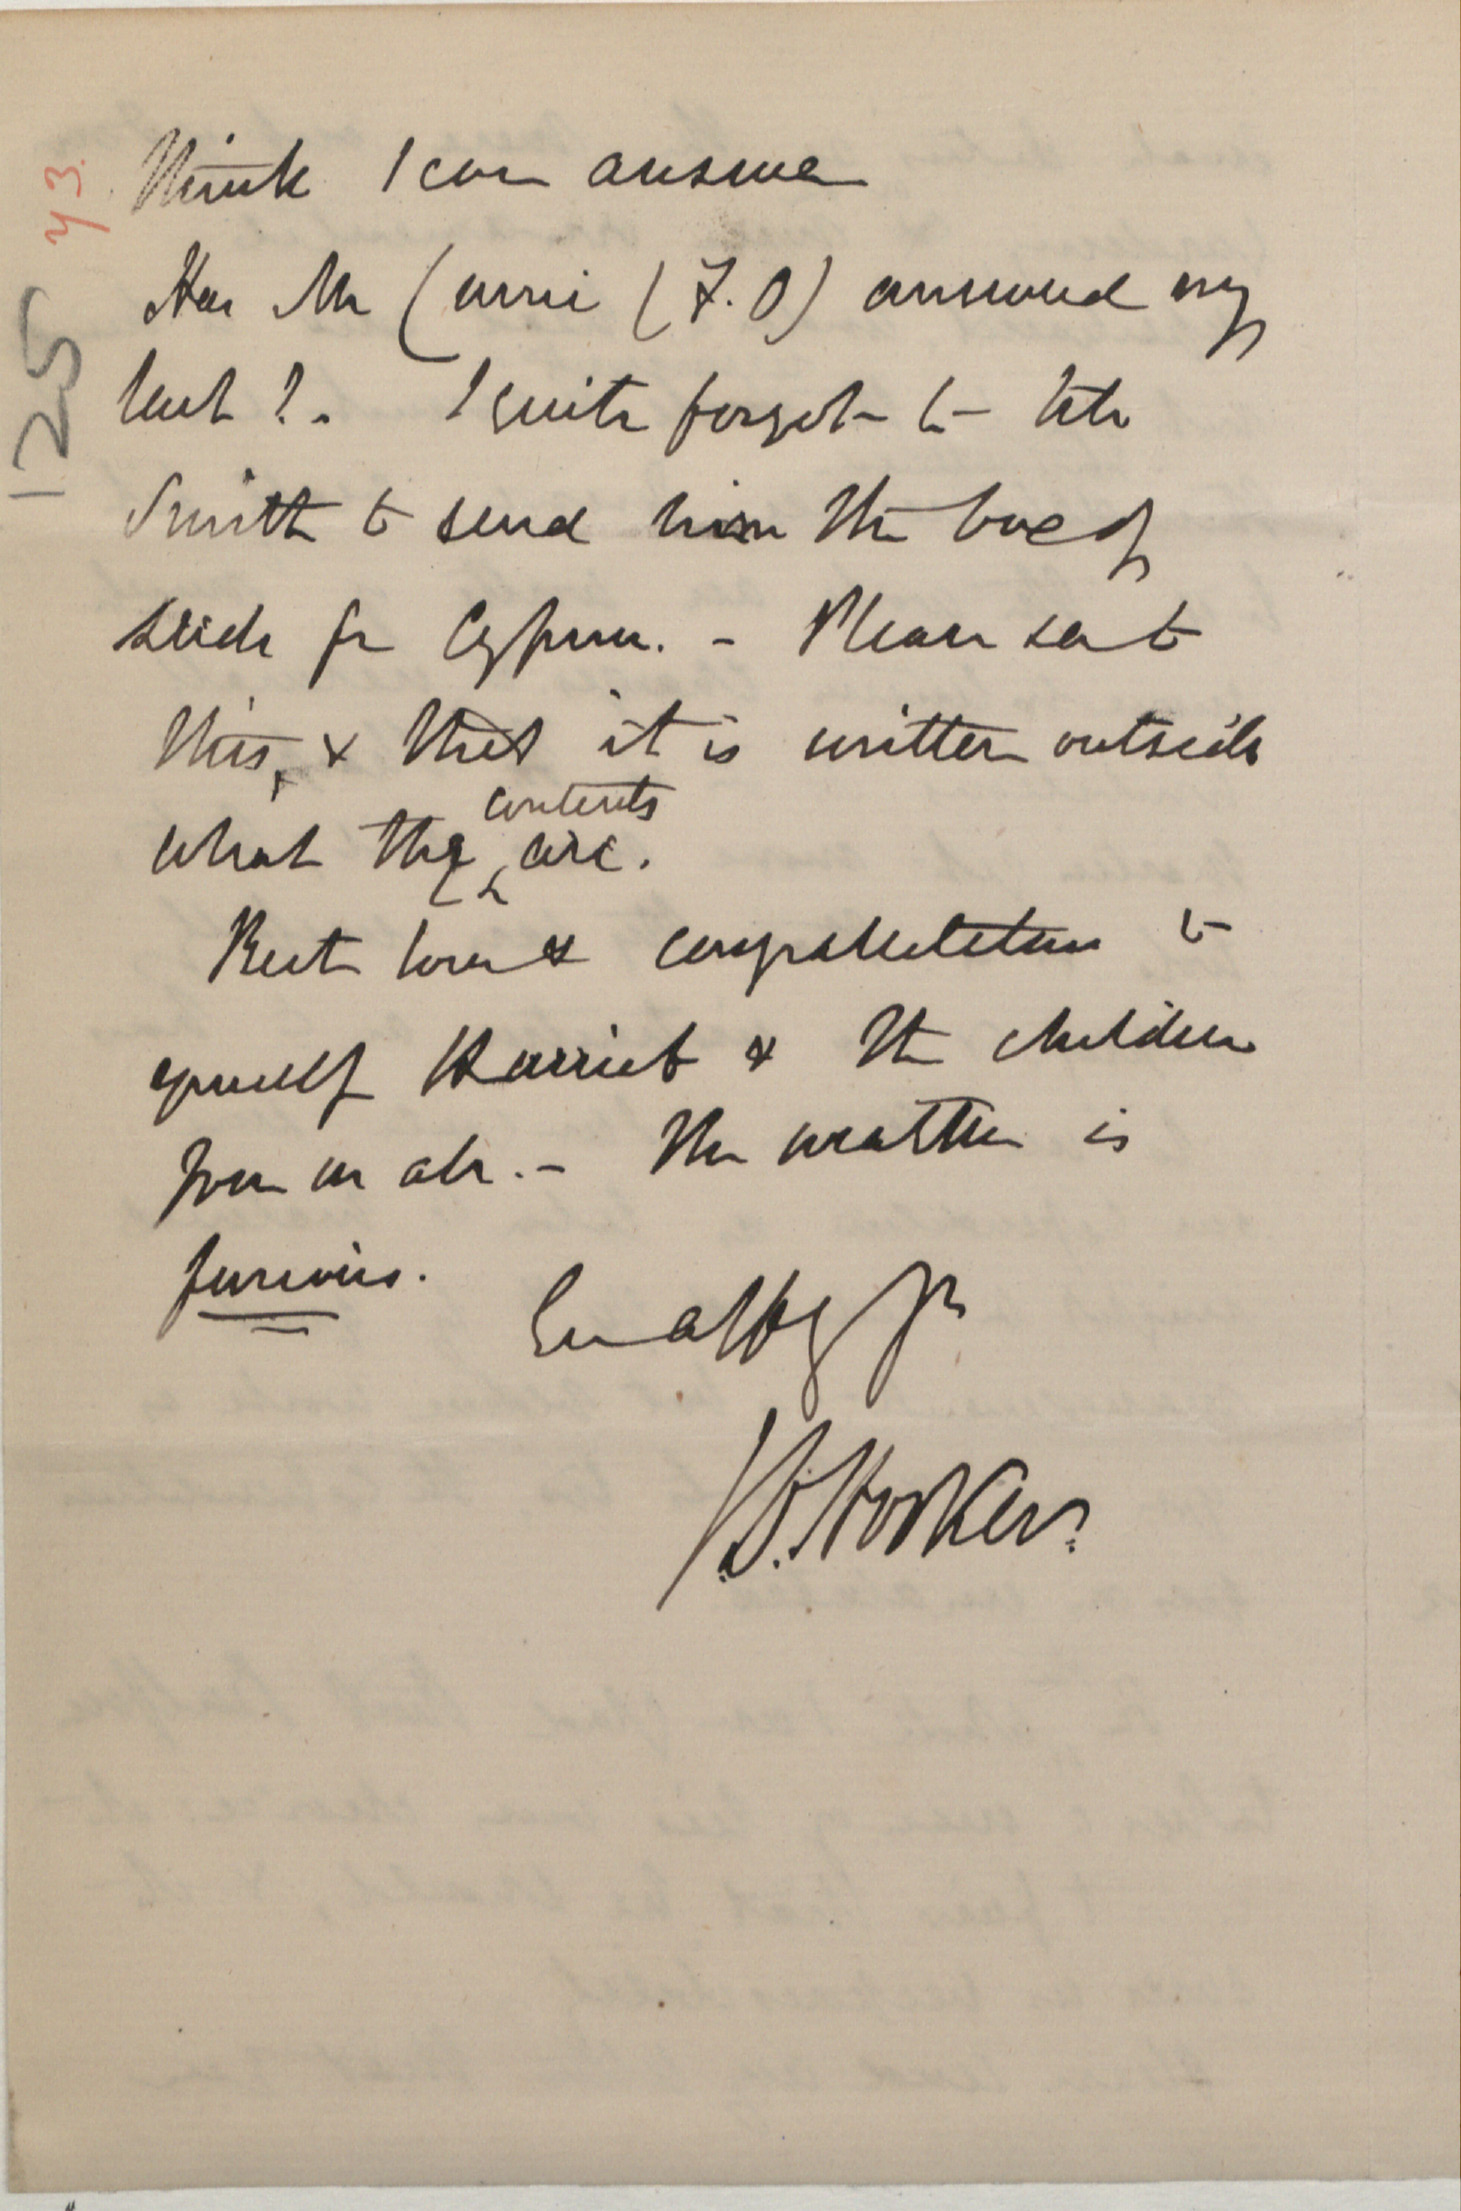 think I can answer
Has Mr Currie (F.O) answered my
last?. I quite forgot to tell
Smith to send him the box of
seeds for Cyprus. – Please see to
this, & that it is written outside
what the contents are.
Best love & congratulations to
yourself Harriet & the children
from us all. – The weather is
furious.
Ever affly yrs
J D. Hooker.
125
43